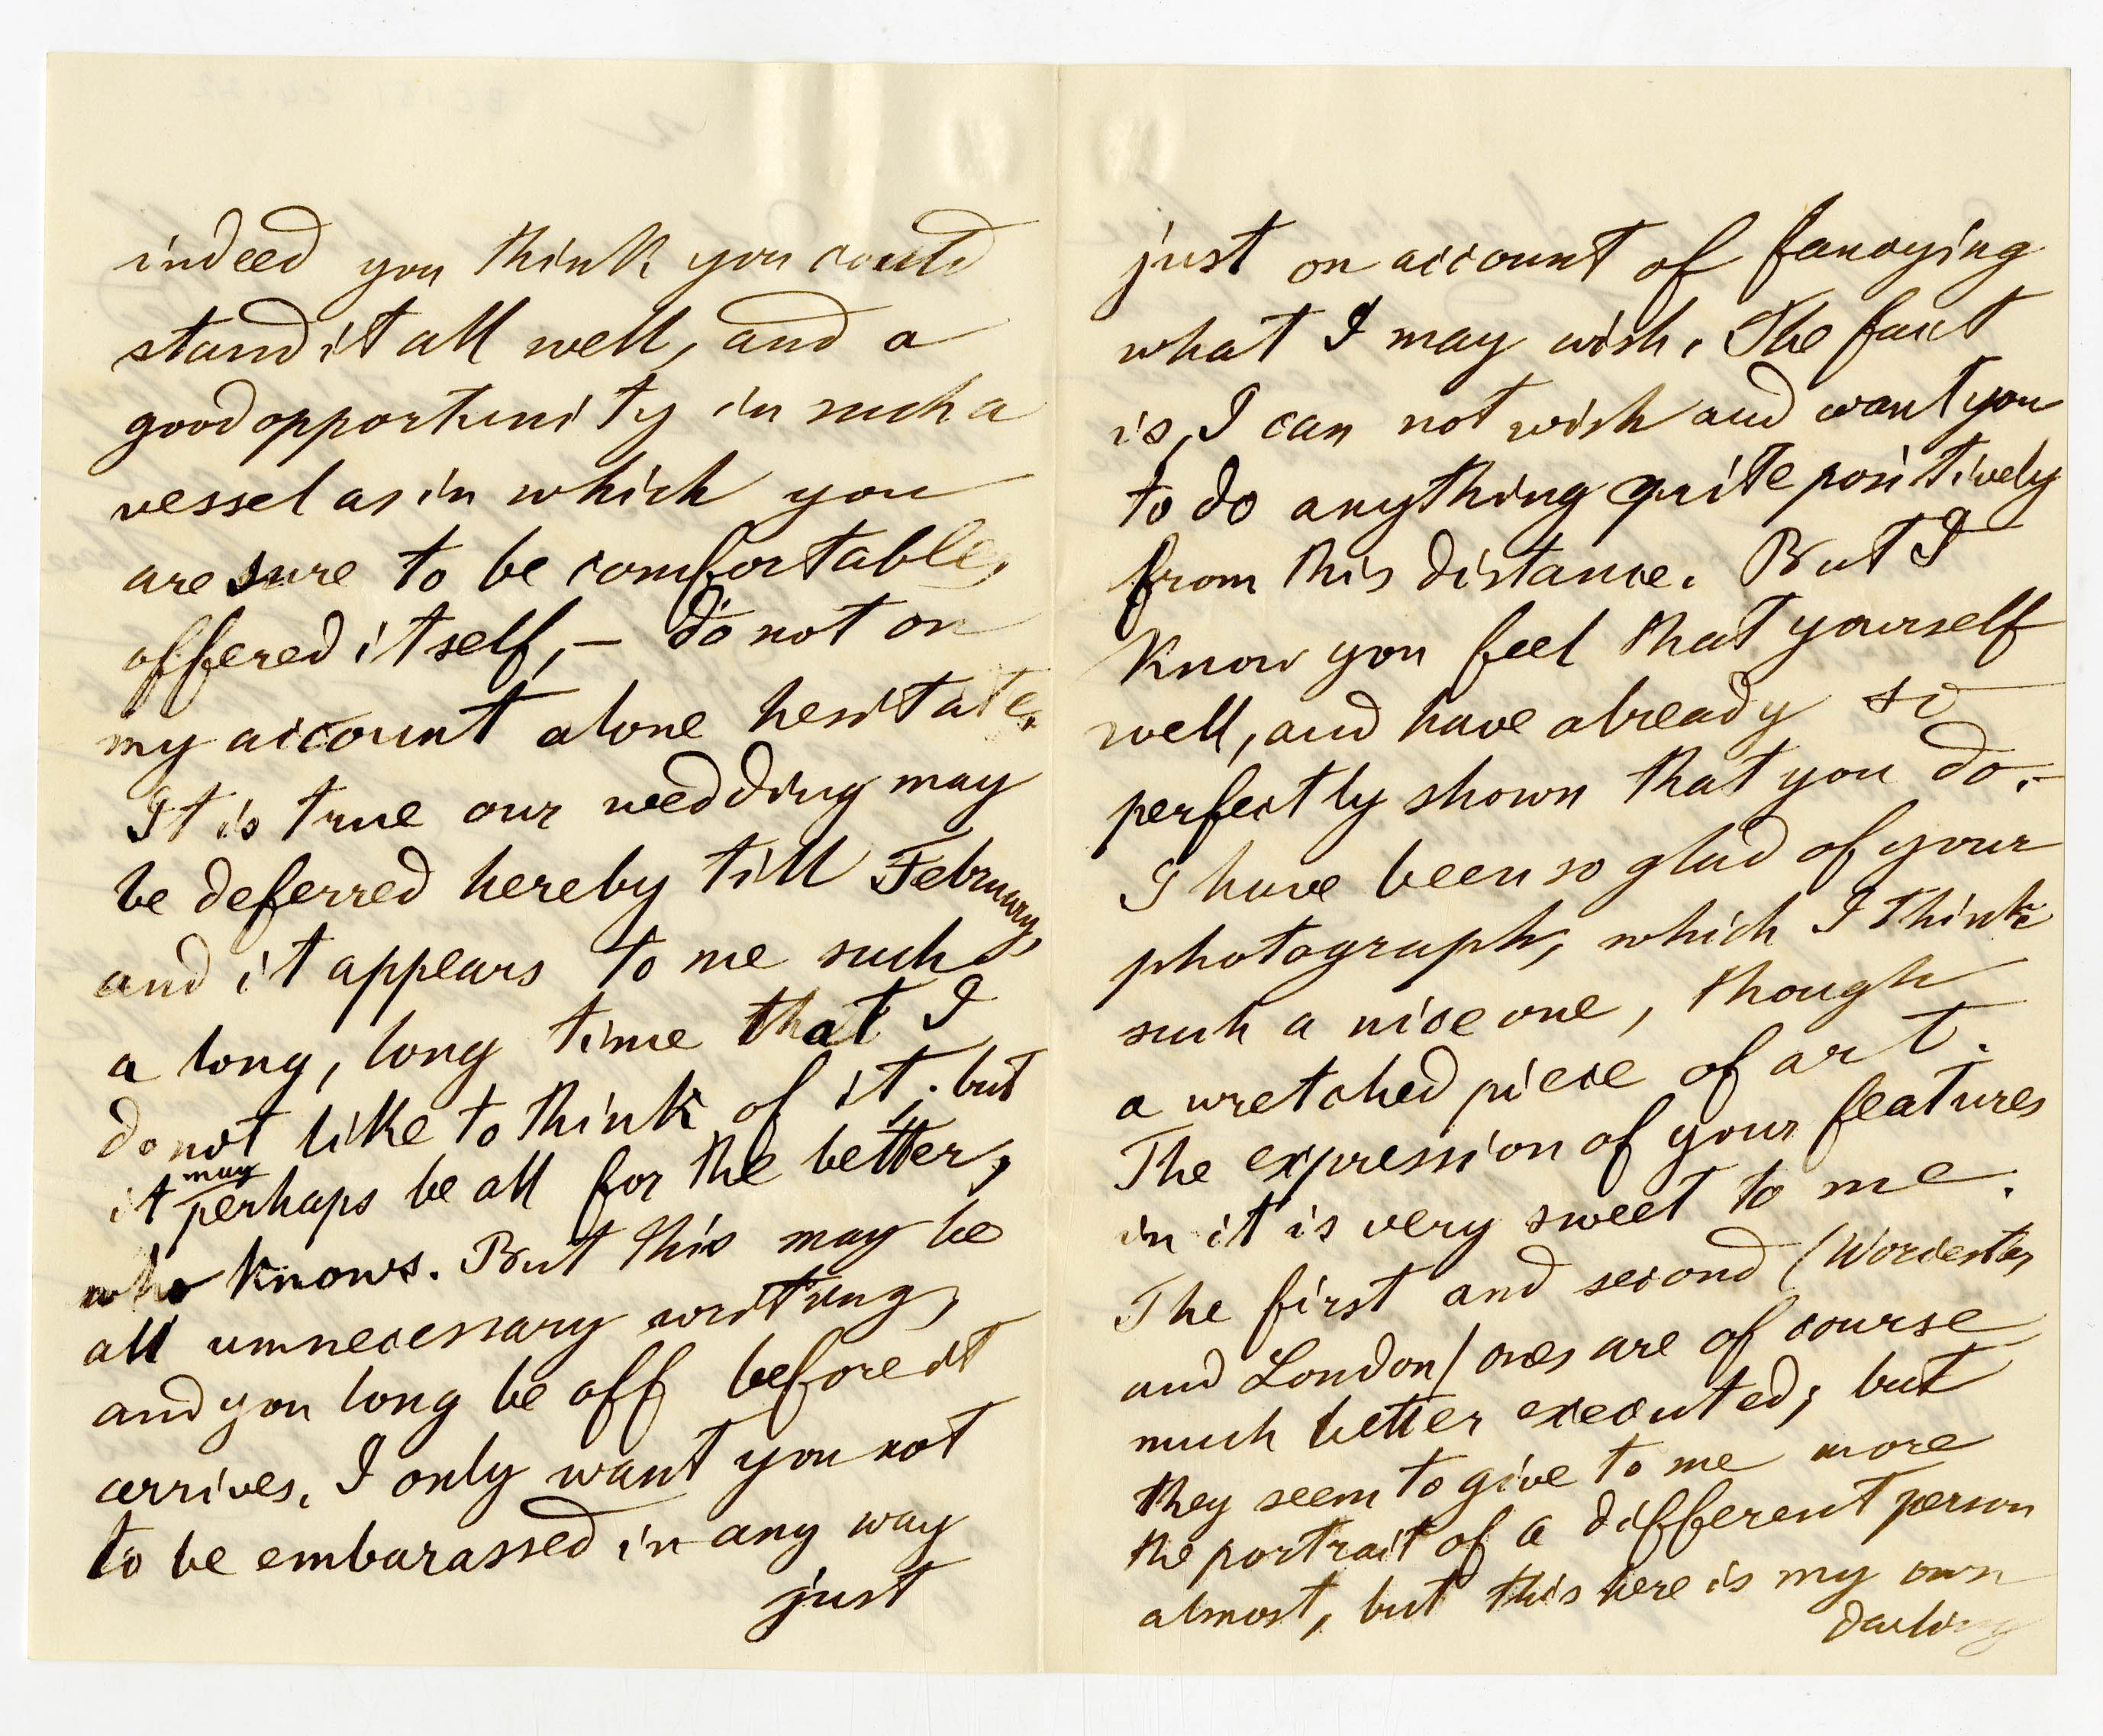 indeed you think you could
stand it all well, and a
good opportunity in such a
vessel as in which you
are sure to be comfortable,
offered itself, – do not on
my account alone hesitate.
It is true our wedding may
be deferred hereby till February,
and it appears to me such
a long, long time that I
do not like to think of it; but
it may perhaps be all for the better,
who knows. But this may be
all unnecessary writing,
and you long be off before it
arrives. I only want you not
to be embarassed in any way
just
just on account of fancying
what I may wish. The fact
is, I can not wish and want you
to do anything quite positively
from this distance. But I
know you feel that yourself
well, and have already so
perfectly shown that you do. –
I have been so glad of your
photograph, which I think
such a nice one, though
a wretched piece of art.
The expression of your features
in it is very sweet to me.
The first and second (Worcester
and London) ones are of course
much better executed; but
they seem to give to me more
the portrait of a different person
almost, but this here is my own
darling